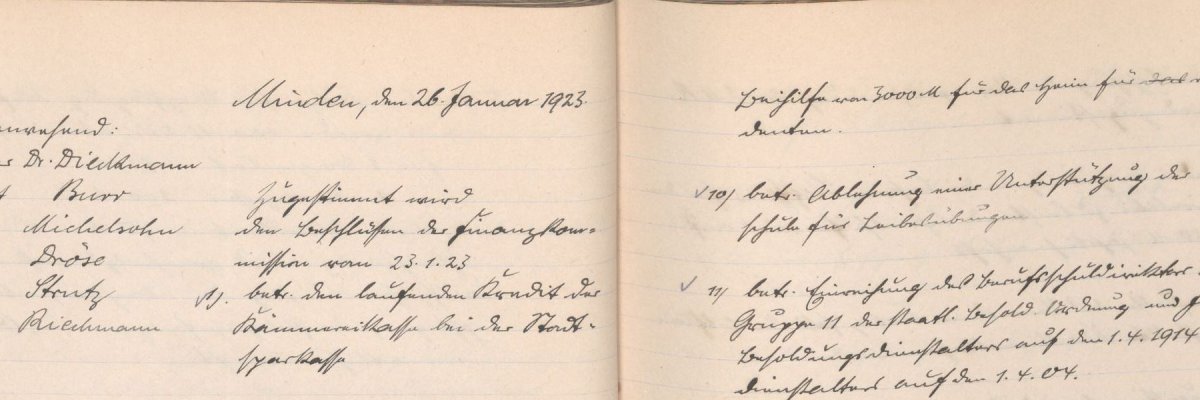 Minden, den 26. Januar 1923.
nwesend:
Dr. Dieckmann
Burr
Michelsohn
Dröse
Strutz
Riechmann
Zugestimmt wird
den Beschlüssen der Finanzkom-
mission vom 23.1.23
1). betr. den laufenden Kredit der
Kämmereikasse bei der Stadt-
sparkasse
Beihilfe von 3000 M für das Heim für
denten.
10) betr. Ablehnung einer Unterstützung der
schule für Leibesübungen
11) betr. Einreihung des Berufsschuldirektors
Gruppe 11 der staatl. Besold. Ordnung und
Besoldungsdienstalters auf den 1.4.1914
dienstalters auf den 1.4.04.